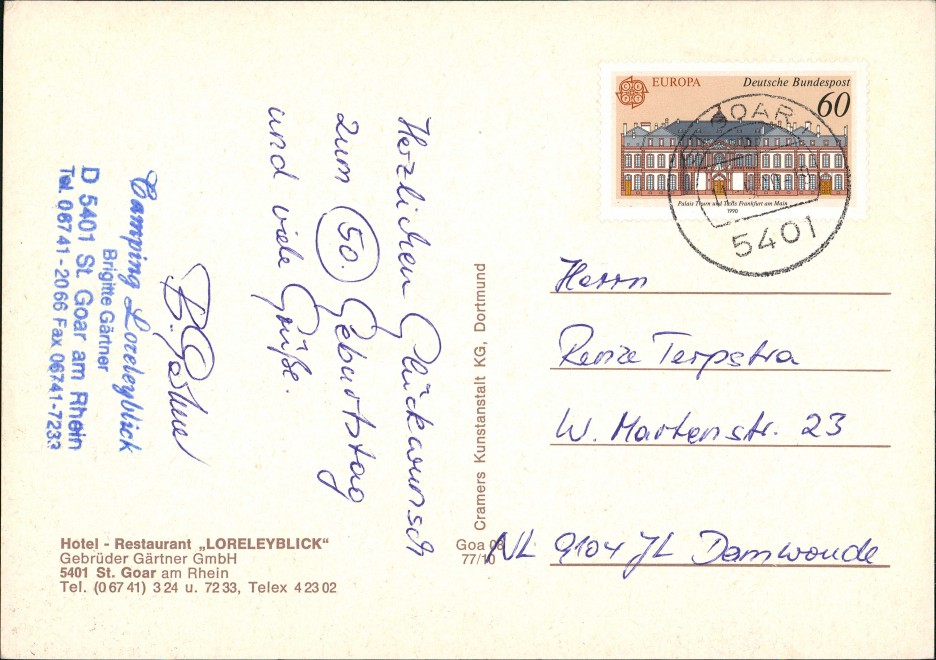 Herzlichen Glückwunsch
zum 50. Geburtstag
und viele Grüße.
B. Gärtner
Camping Loreleyblick
Brigitte Gärtner
D 5401 St. Goar am Rhein
Tel. 06741-2066 Fax 06741-7233
Hotel - Restaurant „LORELEYBLICK“
Gebrüder Gärtner GmbH
5401 St. Goar am Rhein
Tel. (06741) 324 u. 7233, Telex 42302
Cramers Kunstanstalt KG, Dortmund
Goa
77/10
EUROPA
Deutsche Bundespost
60
Palais Thurn und Taxis Frankfurt am Main
1990
GOAR
5401
Herrn
Terpstra
W. Martenstr. 23
NL 9104 JL Damwoude